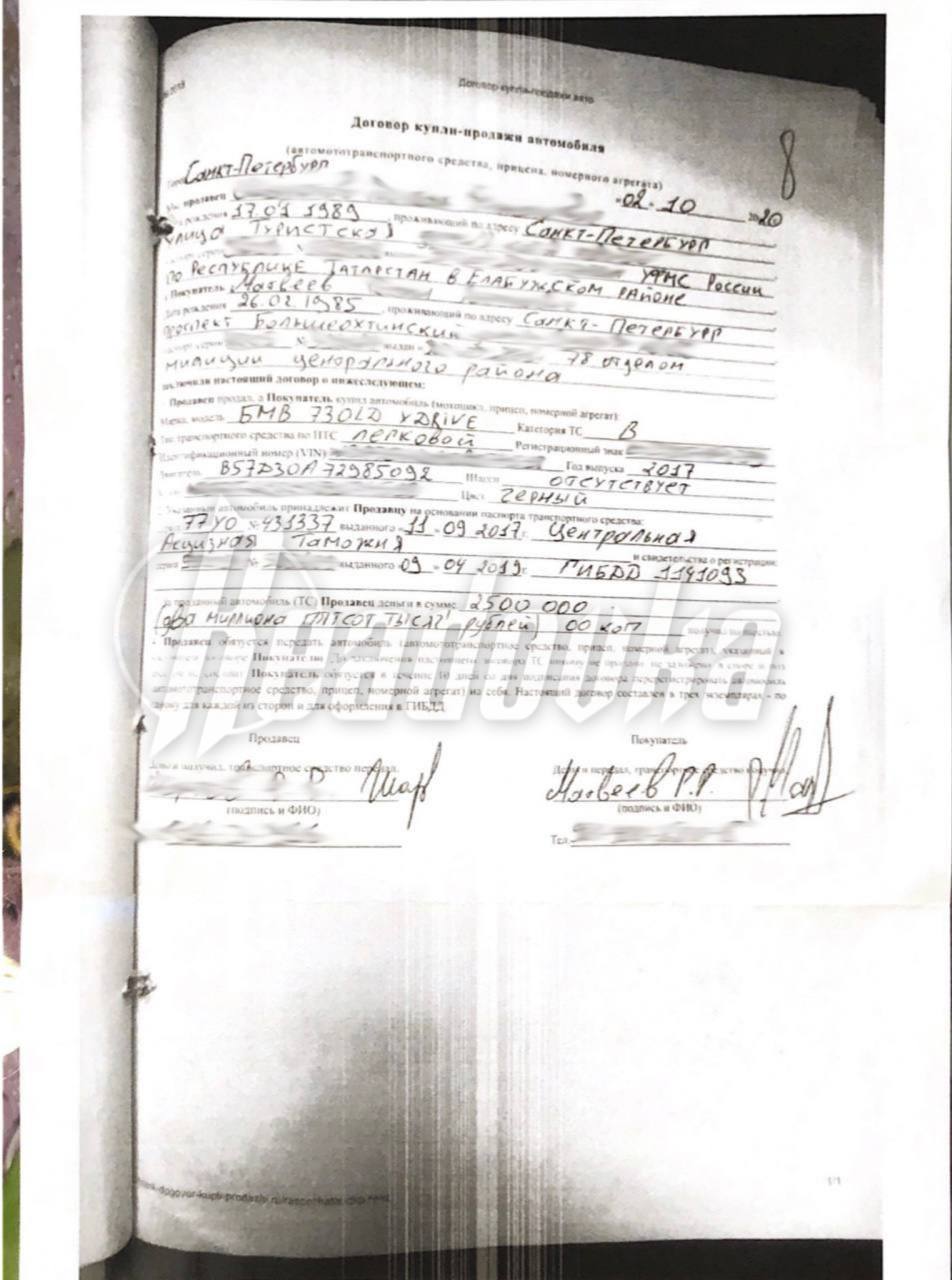 Договор купли-продажи авто
8
Договор купли-продажи автомобиля
(автомототранспортного средства, прицепа, номерного агрегата)
Санкт-Петербург
продавец «02» 10 2020
рождения 17.01 1989, проживающий по адресу Санкт-Петербург
улица Туристская
УФМС России
по Республике Татарстан в Елабужском районе
Покупатель Матвеев
Дата рождения 26.02.1985, проживающий по адресу Санкт-Петербург
проспект Большеохтинский
№ выдан 78 отделом
милиции ценорального района
заключили настоящий договор о нижеследующем:
Продавец продал, а Покупатель купил автомобиль (мотоцикл, прицеп, номерной агрегат):
Марка, модель БМВ 730LD XDRIVE Категория ТС В
Тип транспортного средства по ПТС легковой Регистрационный знак
Идентификационный номер (VIN) Год выпуска 2017
Двигатель B57D30A 72985092 Шасси отсутствует
Цвет черный
Указанный автомобиль принадлежит Продавцу на основании паспорта транспортного средства:
77УО № 431337 выданного «11» 09 2017г. Центральная
Акцизная Таможня и свидетельства о регистрации:
серия № выданного «09» 04 2019г. ГИБДД 1141093
За проданный автомобиль (ТС) Продавец деньги в сумме 2500 000
(два миллиона пятсот тысяч рублей) 00 коп получил полностью.
Продавец обязуется передать автомобиль (автомототранспортное средство, прицеп, номерной агрегат), указанный в
договоре Покупателю. До заключения настоящего договора ТС никому не продано, не заложено, в споре и под
не состоит. Покупатель обязуется в течение 10 дней со дня подписания договора перерегистрировать автомобиль
(автомототранспортное средство, прицеп, номерной агрегат) на себя. Настоящий договор составлен в трех экземплярах - по
одному для каждой из сторон и для оформления в ГИБДД.
Readovka
Продавец Покупатель
Деньги получил, транспортное средство передал. Деньги передал, транспортное средство получил.
Матвеев Р.Р.
(подпись и ФИО) (подпись и ФИО)
Тел.
1/1